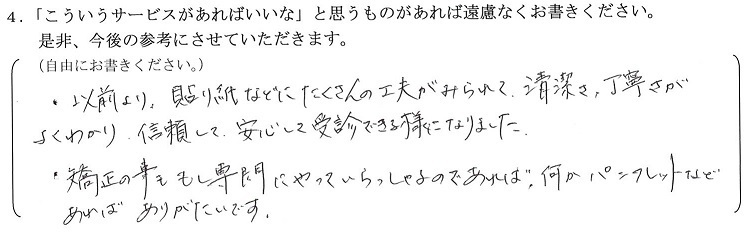 4．「こういうサービスがあればいいな」と思うものがあれば遠慮なくお書きください。
是非、今後の参考にさせていただきます。
（自由にお書きください。）
・以前より、貼り紙などにたくさんの工夫がみられて、清潔さ、丁寧さが
よくわかり、信頼して、安心して受診できる様になりました。
・矯正の事ももし専門にやっていらっしゃるのであれば、何かパンフレットなど
あれば ありがたいです。